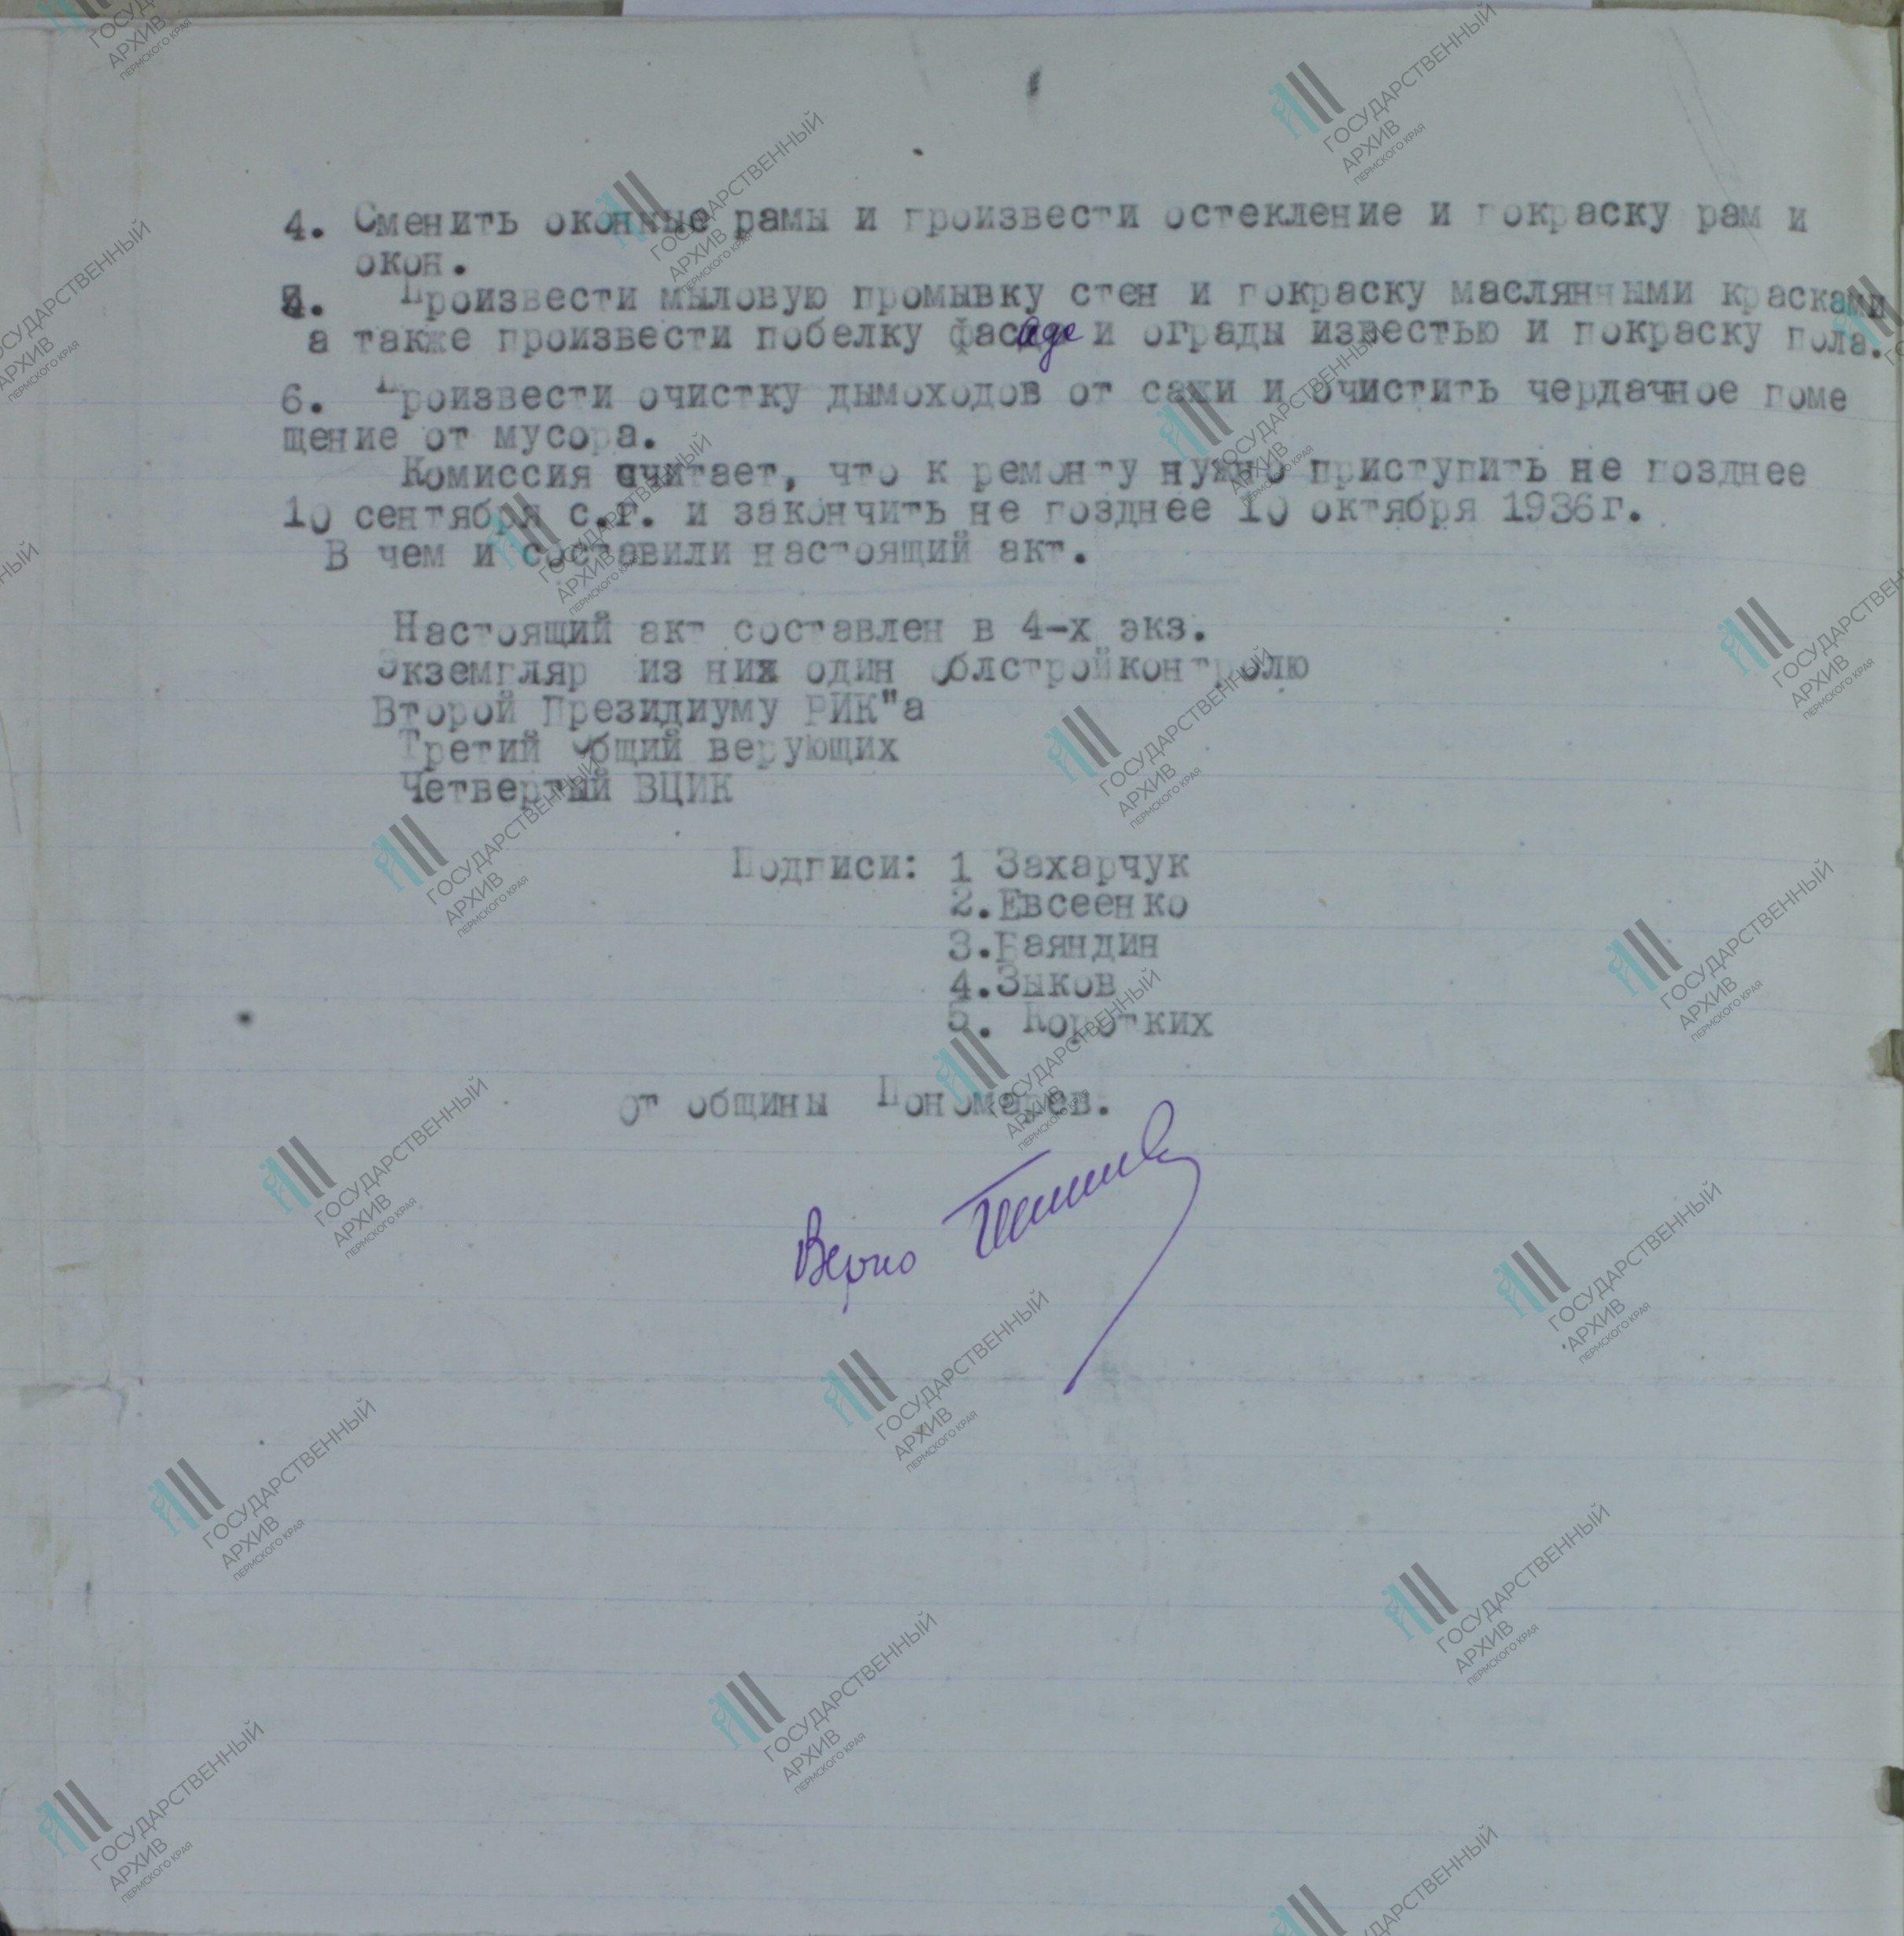 4. Сменить оконные рамы и произвести остекление и покраску рам и
окон.
Произвести мыловую промывку стен и покраску маслянными красками
а также произвести побелку фасаде и ограды известью и покраску пола.
6. Произвести очистку дымоходов от сажи и очистить чердачное поме
щение от мусора.
Комиссия считает, что к ремонту нужно приступить не позднее
10 сентября с.г. и закончить не позднее 10 октября 1936г.
В чем и составили настоящий акт.
Настоящий акт составлен в 4-х экз.
Экземпляр из них один Облстройконтролю
Второй Президиуму РИК"а
Третий Общий верующих
Четвертый ВЦИК
Подписи: 1 Захарчук
2.Евсеенко
3.Баяндин
4.Зыков
5. Коротких
От общины Пономарев.
Верно
ГОСУДАРСТВЕННЫЙ
АРХИВ
ПЕРМСКОГО КРАЯ